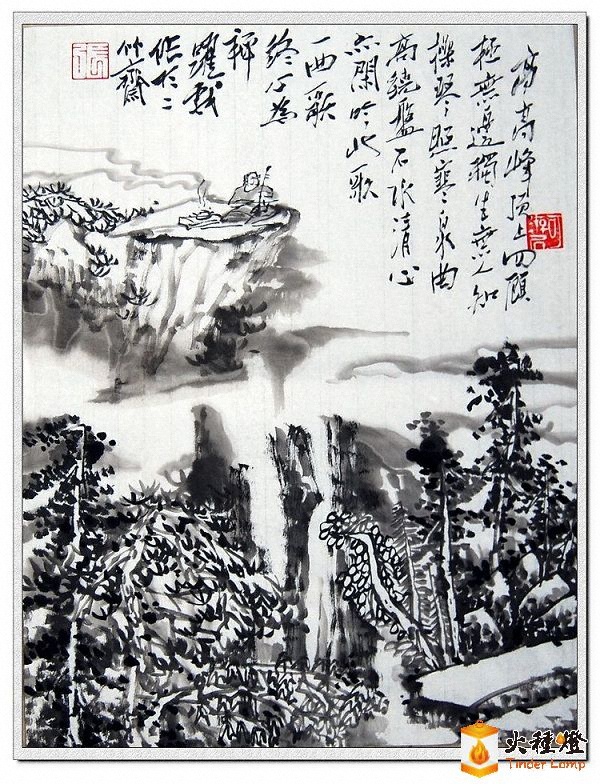 高峰頂上四顧
極無邊獨坐無人知
操琴照寒泉曲
高繞盤石水清心
亦閑吟此歌
一曲歌
終不為
禪
躍
作於二
竹齋
張
火種燈
Tinder Lamp